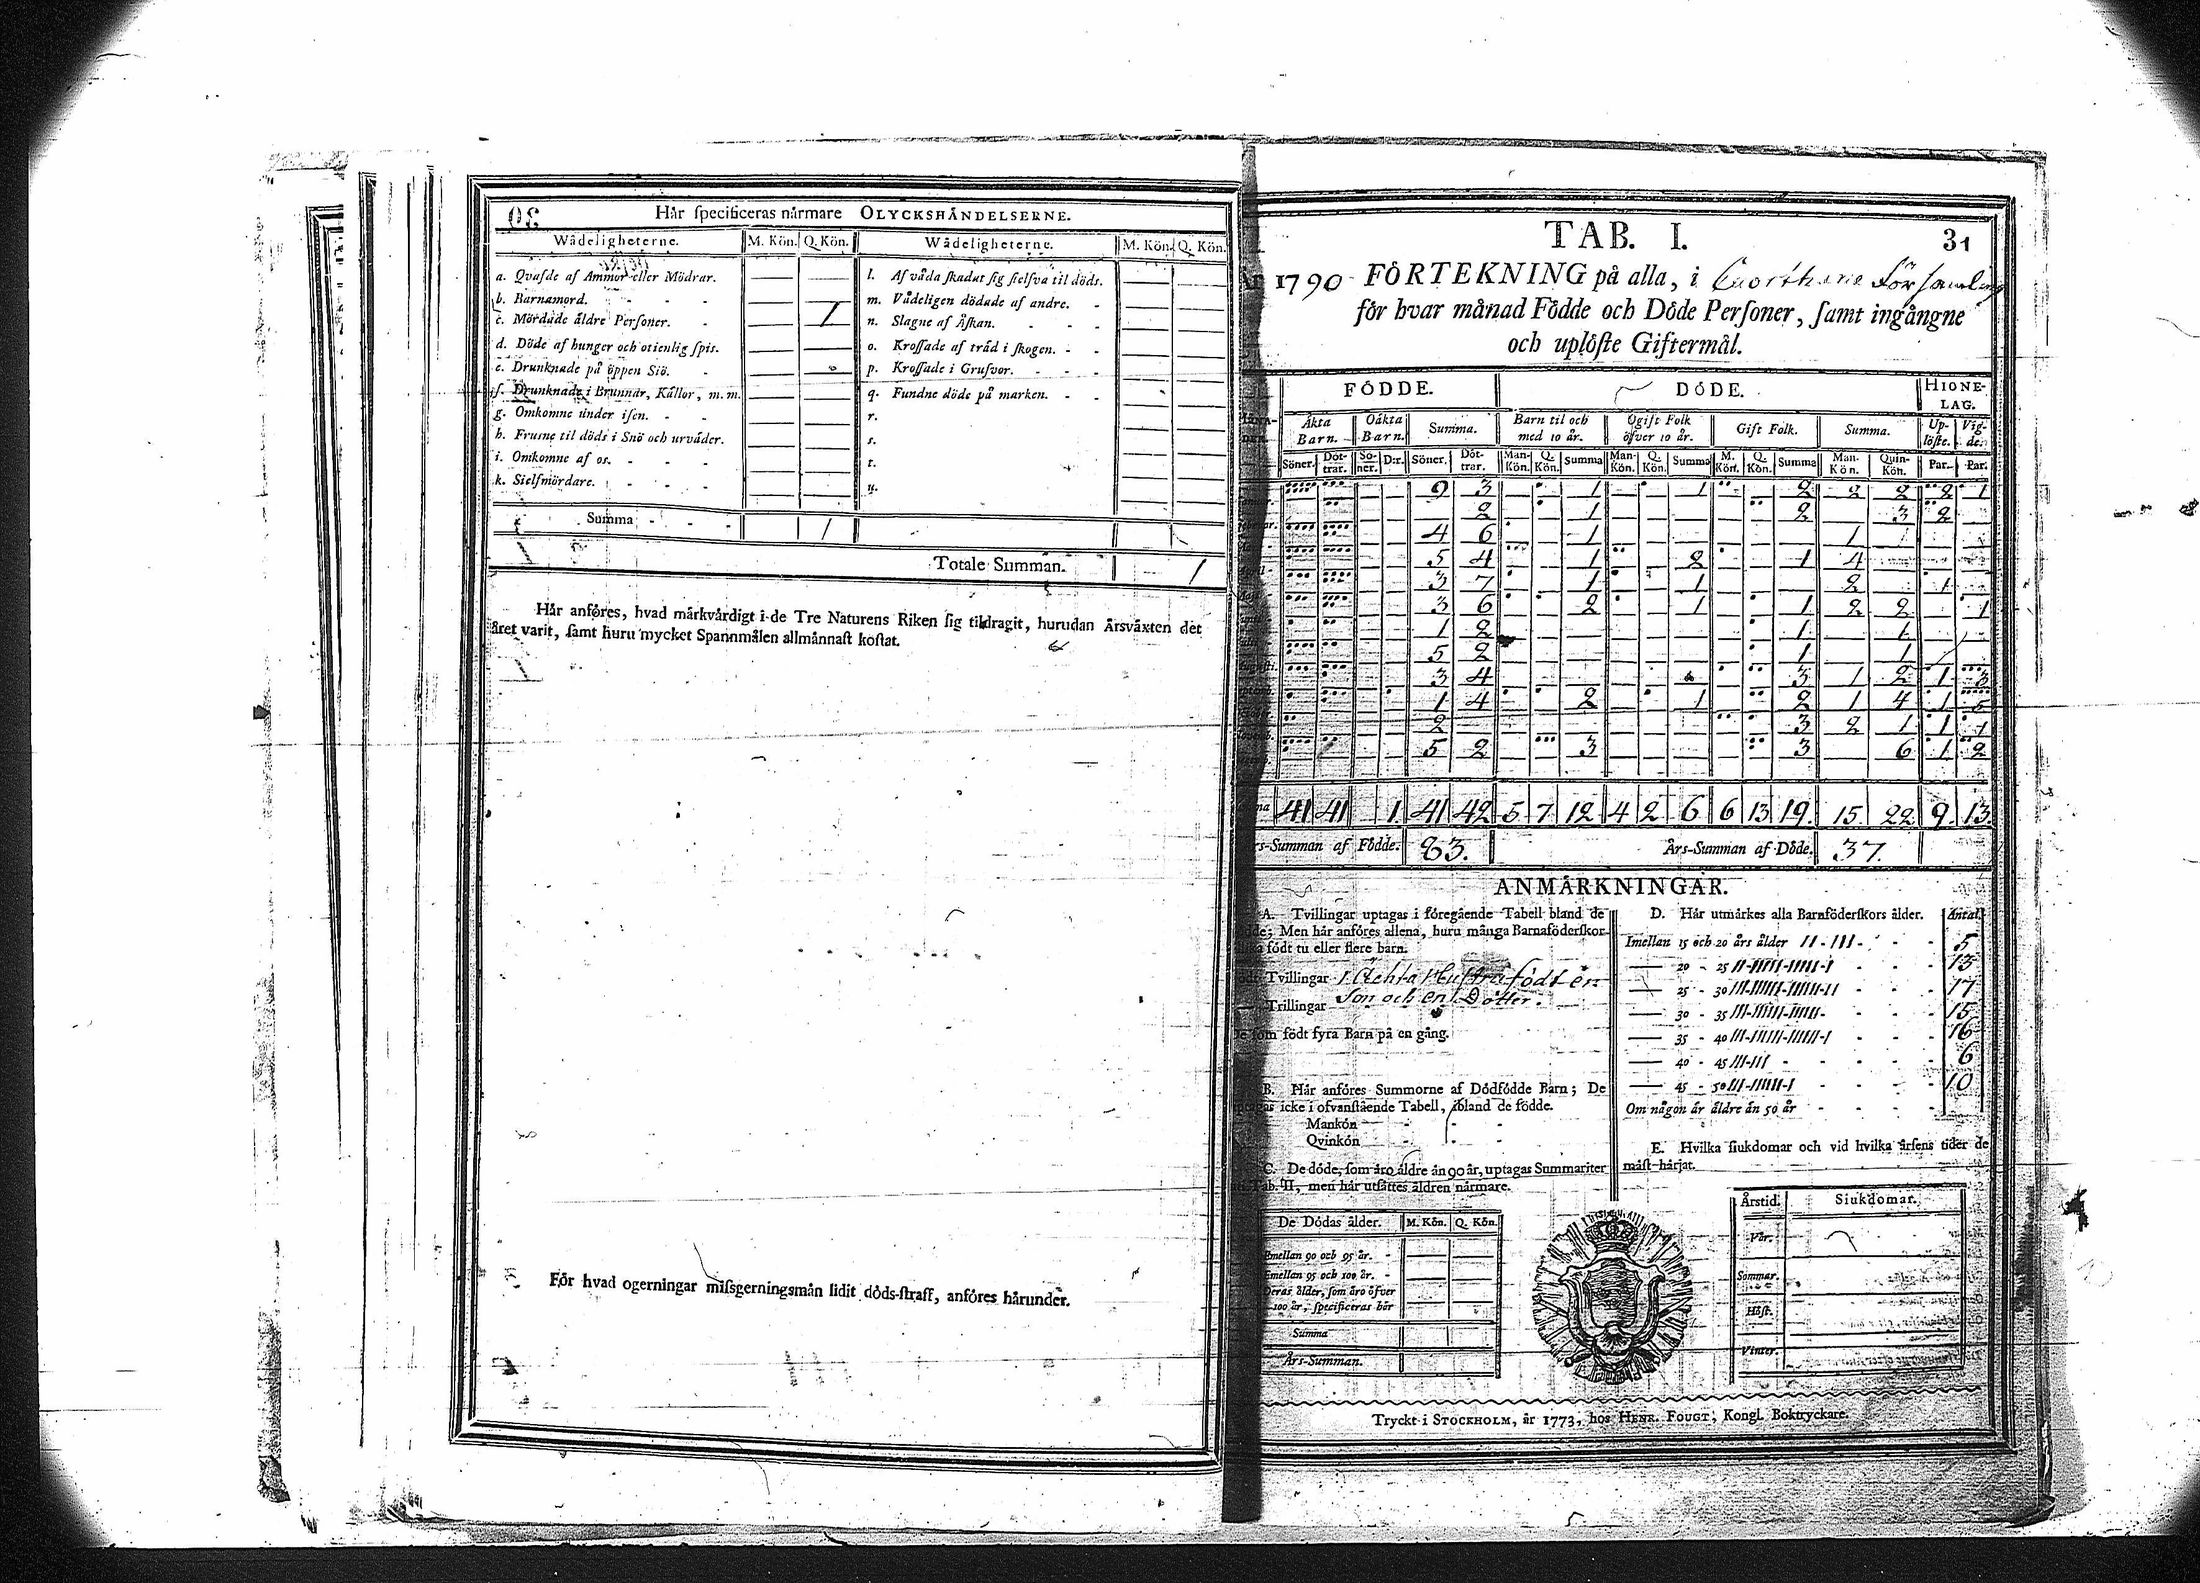 30
Hår ſpecificeras nårmare OLYCKSHÅNDELSERNE.
Wådeligheterne. M. Kön. Q. Kön. Wådeligheterne. M. Kön. Q. Kön.
a. Qvafde af Ammor eller Mödrar. l. Af våda ſkadat ſig ſielfva til döds.
b. Barnamord. m. Vådeligen dödade af andre.
c. Mördade äldre Perſoner. 1 n. Slagne af Åſkan.
d. Döde af hunger och otienlig ſpis. o. Kroſſade af tråd i ſkogen.
e. Drunknade på öppen Siö. p. Kroſſade i Grufvor.
f. Drunknade i Brunnar, Kållor, m.m. q. Fundne döde på marken.
g. Omkomne under iſen. r.
h. Fruſne til döds i Snö och urväder. s.
i. Omkomne af os. t.
k. Sielfmördare. u.
Summa 1
Totale Summan. 1
Hår anföres, hvad mårkvårdigt i de Tre Naturens Riken ſig tildragit, hurudan Årsvåxten det
året varit, ſamt huru mycket Spannmålen allmånnaſt koſtat.
För hvad ogerningar miſsgerningsmån lidit döds-ſtraff, anföres hårunder.
TAB. I. 31
År 1790 FÖRTEKNING på alla, i Församling
för hvar månad Födde och Döde Perſoner, ſamt ingångne
och uplöſte Giftermål.
FÖDDE. DÖDE. HIONE-
LAG.
Åkta Barn. Oåkta Barn. Summa. Barn til och med 10 år. Ogift Folk öfver 10 år. Gift Folk. Summa. Up-löſte. Vig-de.
Söner. Döt-trar. Sö-ner. D:r. Söner. Döt-trar. Man-Kön. Q. Kön. Summa Man-Kön. Q. Kön. Summa M. Kön. Q. Kön. Summa Man-Kön. Quin-Kön. Par. Par.
9 3 1 1 2 2 2 2 1
2 1 2 3 2
4 6 1 1
5 4 1 2 1 4
3 7 1 1 2 1
3 6 2 1 1 2 2 1
1 2 1 1
5 2 1 1
3 4 3 1 2 1 3
1 4 2 1 2 1 4 1 5
2 3 2 1 1 1
5 2 3 3 6 1 2
41 41 1 41 42 5 7 12 4 2 6 6 13 19 15 22 9 13
Års-Summan af Födde. 83. Års-Summan af Döde. 37.
ANMÅRKNINGAR.
A. Tvillingar uptagas i föregående Tabell bland de
födde; Men hår anföres allena, huru många Barnaföderſkor
födt tu eller flere barn.
Tvillingar 1 Ächta Hustru födt en
Trillingar Son och en Dotter.
De ſom födt fyra Barn på en gång.
B. Hår anföres Summorne af Dödfödde Barn; De
uptagas icke i ofvanſtående Tabell, ibland de födde.
Mankön
Qvinkön
C. De döde, ſom åro åldre ån 90 år, uptagas Summariter
Tab. II, men hår utſåttes åldren nårmare.
De Dödas ålder. M. Kön. Q. Kön.
Emellan 90 och 95 år.
Emellan 95 och 100 år.
Deras ålder, ſom åro öfver
100 år, ſpecificeras hår
Summa
Års-Summan.
D. Hår utmårkes alla Barnföderſkors ålder. Antal
Imellan 15 och 20 års ålder II-III- 5
20 - 25 II-IIIII-IIIII-I 13
25 - 30 III-IIIIII-IIIIII-II 17
30 - 35 15
35 - 40 16
40 - 45 III-III 6
45 - 50 10
Om någon år åldre ån 50 år
E. Hvilka ſiukdomar och vid hvilka årſens tider de
måſt hårjat.
Årstid. Siukdomar.
Vår.
Sommar.
Höſt.
Vinter.
Tryckt i STOCKHOLM, år 1773, hos HENR. FOUGT, Kongl. Boktryckare.